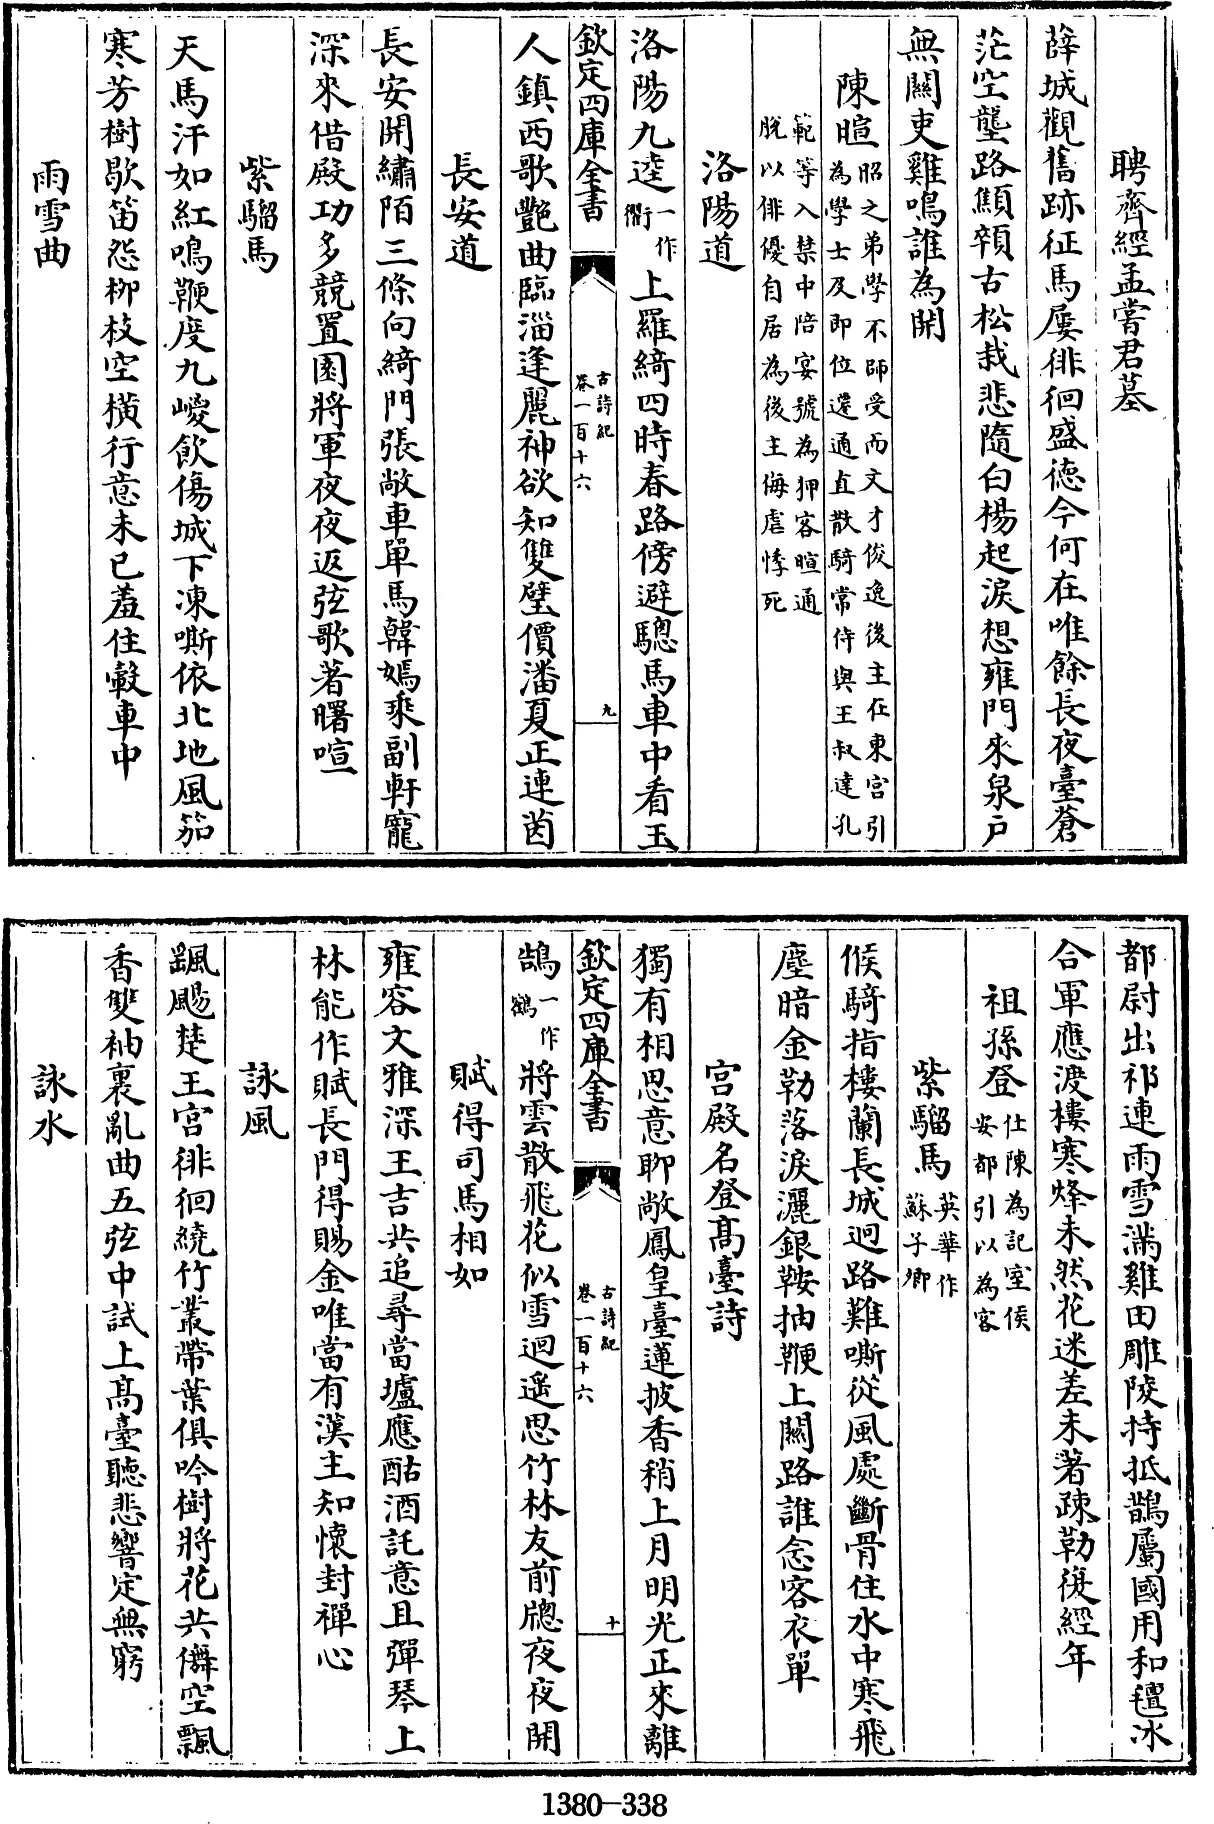 聘齊經孟嘗君墓
薛城觀舊跡征馬屢徘徊盛徳今何在唯餘長夜臺蒼
茫空壟路顦顇古松栽悲隨白楊起淚想雍門來泉戶
無關吏雞鳴誰為開
陳暄昭之弟學不師受而文才俊逸後主在東宮引
為學士及即位遷通直散騎常侍與王叔達孔
範等入禁中陪宴號為狎客暄通
脫以俳優自居為後主侮虐悸死
洛陽道
洛陽九逵一作衢上羅綺四時春路傍避驄馬車中看玉
欽定四庫全書
古詩紀
卷一百十六
九
人鎮西歌艷曲臨淄逢麗神欲知雙璧價潘夏正連茵
長安道
長安開繡陌三條向綺門張敞車單馬韓嫣乘副軒寵
深來借殿功多競置園將軍夜夜返弦歌著曙喧
紫騮馬
天馬汗如紅鳴鞭度九嵕飲傷城下凍嘶依北地風笳
寒芳樹歇笛怨柳枝空橫行意未已羞住轂車中
雨雪曲
都尉出祁連雨雪滿雞田雕陵持抵鵲屬國用和氊冰
合軍應渡樓寒烽未然花迷差未著疎勒復經年
祖孫登仕陳為記室侯
安都引以為客
紫騮馬英華作
蘇子卿
候騎指樓蘭長城迥路難嘶從風處斷骨住水中寒飛
塵暗金勒落淚灑銀鞍抽鞭上關路誰念客衣單
宮殿名登髙臺詩
獨有相思意聊敞鳳皇臺蓮披香稍上月明光正來離
欽定四庫全書
古詩紀
卷一百十六
十
鵠一作鶴將雲散飛花似雪迴遥思竹林友前牕夜夜開
賦得司馬相如
雍容文雅深王吉共追尋當壚應酤酒託意且彈琴上
林能作賦長門得賜金唯當有漢主知懷封禪心
詠風
颻颺楚王宮徘徊繞竹叢帶葉俱吟樹將花共儛空飄
香雙袖裏亂曲五弦中試上髙臺聽悲響定無窮
詠水
1380-338